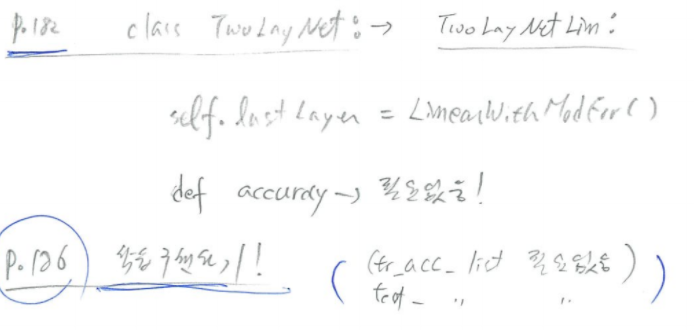 p.182 class TwoLayNet : → TwoLayNetLin :
self.lastLayer = LinearWithModErr()
def accuracy → 필요없음!
p.186 학습 구현하기! ( (tr_acc_list 필요없음) )
test_ " "